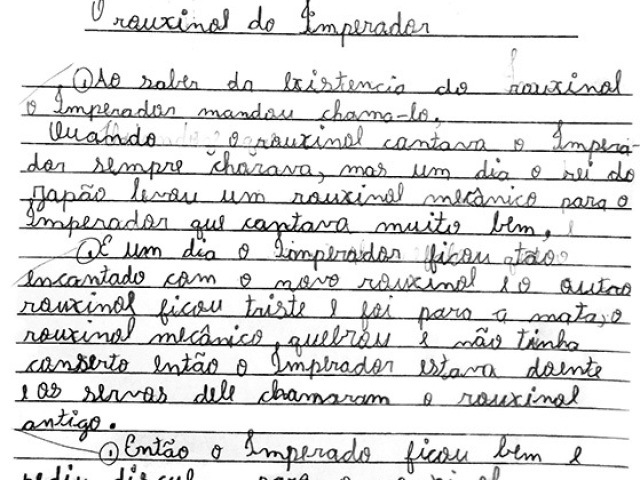 O rouxinol do Imperador
① Ao saber da existencia do rouxinol
o Imperador mandou chama-lo.
Quando o rouxinol cantava o Impera-
dor sempre chorava, mas um dia o rei do
Japão levou um rouxinol mecânico para o
Imperador que cantava muito bem,
① E um dia o Imperador ficou tão
encantado com o novo rouxinol e o outro
rouxinol ficou triste e foi para a mata, o
rouxinol mecânico, quebrou e não tinha
conserto então o Imperador estava doente
e os servos dele chamaram o rouxinol
antigo.
① Então o Imperado ficou bem e
pediu